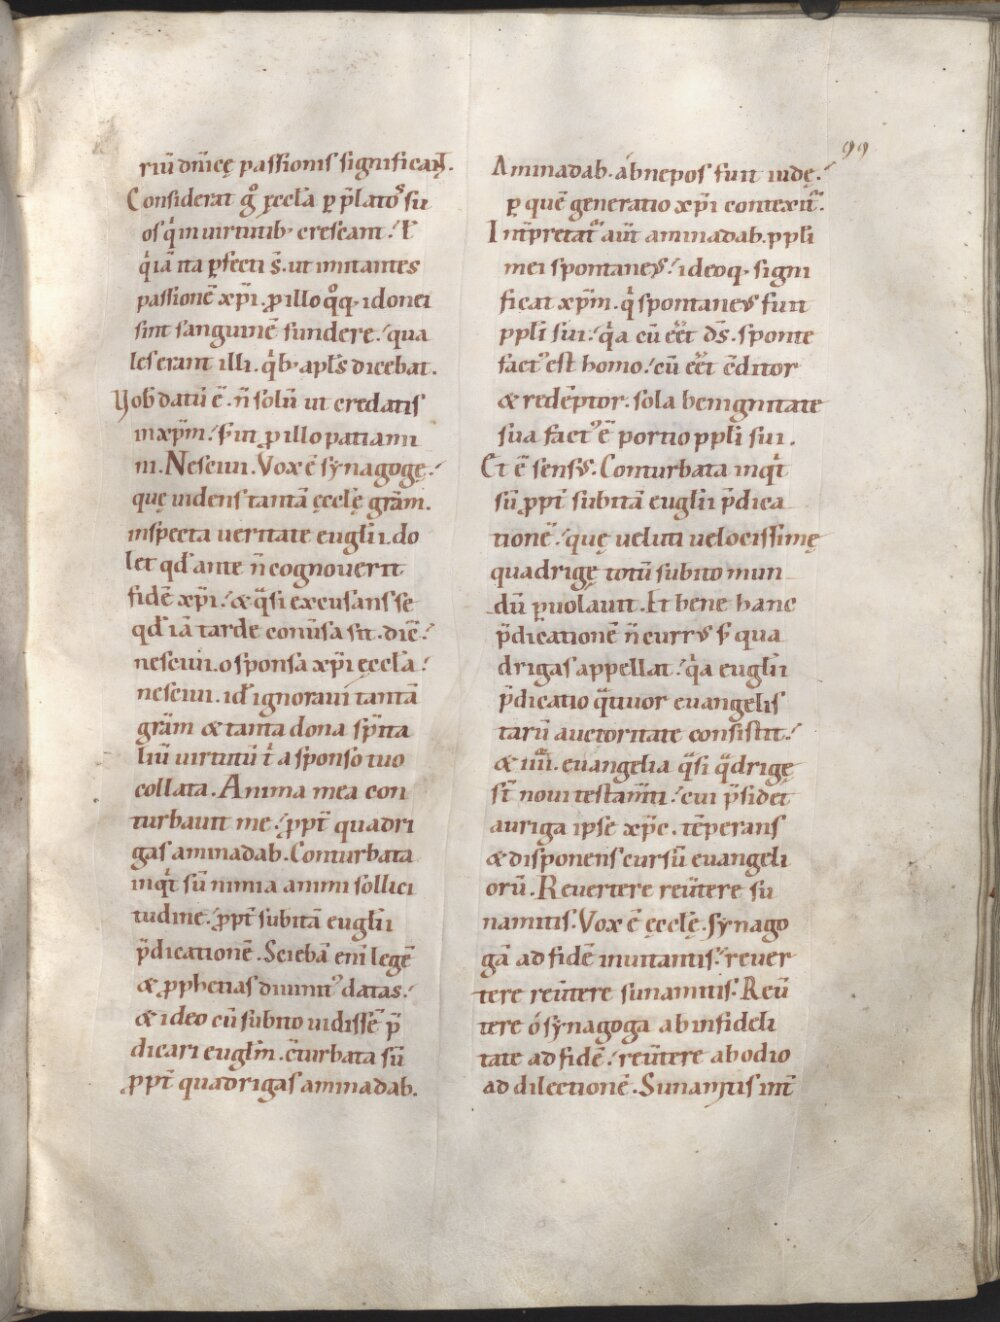 99
riū dn̄icę passionis significant̄.
Considerat g̊ ęccl̄a p̱ p̄lato᷒ su
os q̍ in uirtutib; crescant. / Et
q̍ iā ita p̱fecti s̄. ut imitantes
passionē xp̄i. ꝓ illo q̊q; idonei
sint sanguinē fundere. / qua
les erant illi. q̍b; apl̄s dicebat.
Vob̄ datū ē. n̄ solū ut credatis
in xp̄m. / s; ut ꝓ illo patiami
ni. Nesciui. Vox ē synagogę. /
quę uidens tantā ęccl̄ę gr̄am.
inspecta ueritate eugl̄ii. do
let qd̄ ante n̄ cognouerit
fidē xp̄i. / & q̄si excusans se
qd̄ iā tarde conūsa sit. dic̄. /
nesciui. o sponsa xp̄i ęccl̄a. /
nesciui. id̄ ignoraui tantā
gr̄am & tanta dona sp̄ita
liū uirtutū t̍ a sponso tuo
collata. Anima mea con
turbauit me. / ꝓpt̄ quadri
gas aminadab. Conturbata
inq̍t sū nimia animi sollici
tudine. / ꝓpt̄ subitā eugl̄ii
p̄dicationē. Sciebā eni legē
& ꝓphetias diuinit᷒ datas. /
& ideo cū subito uidissē p̄
dicari eugl̄m. c̄turbata sū
ꝓpt̄ quadrigas aminadab.
Aminadab. abnepos fuit iudę. /
p̱ quē generatio xp̄i contexit᷑.
Int̄pretat᷑ aut̄ aminadab. ppl̄i
mei spontaneus. / ideoq; signi
ficat xp̄m. q̍ spontaneus fuit
ppl̄i sui. / q̍a cū eēt ds̄. sponte
fact᷒ est homo. / cū eēt c̄ditor
& redēptor. sola benignitate
sua fact᷒ ē portio ppl̄i sui.
Et ē sensus. Conturbata inq̍t
sū ꝓpt̄ subitā eugl̄ii p̄dica
tionē. / quę ueluti uelocissimę
quadrigę totū subito mun
dū p̱uolauit. Et bene hanc
p̄dicationē n̄ currus s; qua
drigas appellat. / q̍a eugl̄ii
p̄dicatio q̄tuor euangelis
tarū auctoritate consistit. /
& iiii. euangelia q̄si q̄drigę
st̄ noui testam̄ti. / cui p̄sidet
auriga ipse xp̄c. tēperans
& disponens cursū euangeli
orū. Revertere reūtere su
namitis. Vox ē ęccl̄ę. synago
gā ad fidē inuitantis. / reuer
tere reūtere sunamitis. Reū
tere ó synagoga ab infideli
tate ad fidē. / reūtere ab odio
ad dilectionē. Sunamitis int̄